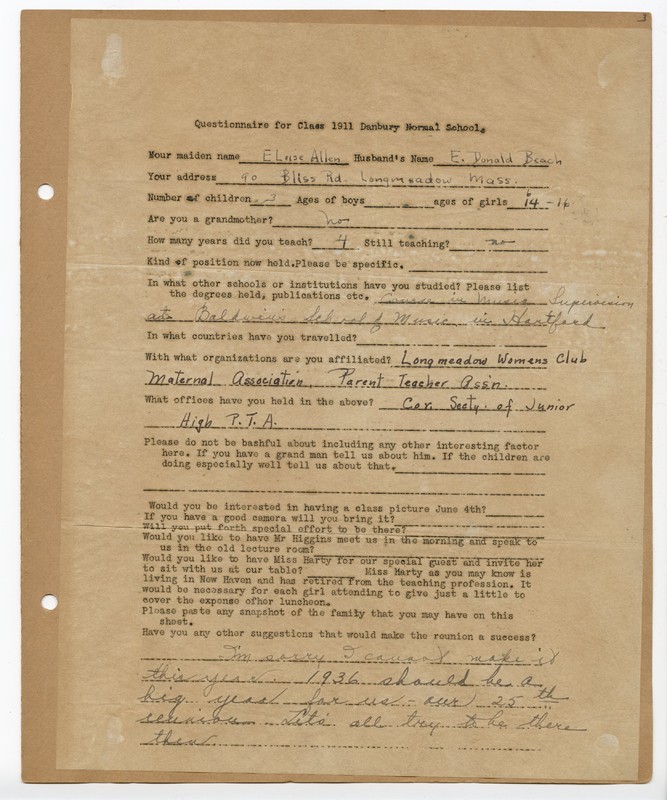 3
Questionnaire for Class 1911 Danbury Normal School.
Your maiden name Eloise Allen Husband's Name E. Donald Beach
Your address 90 Bliss Rd. Longmeadow Mass.
Number of children 3 Ages of boys - ages of girls 14 - 16
Are you a grandmother? no
How many years did you teach? 4 Still teaching? no
Kind of position now held.Please be specific.
In what other schools or institutions have you studied? Please list
the degrees held, publications etc. Course in Music Supervision
at Baldwin's School of Music in Hartford
In what countries have you travelled?
With what organizations are you affiliated? Longmeadow Womens Club
Maternal Association, Parent Teacher Ass'n.
What offices have you held in the above? Cor. Secty. of Junior
High P.T.A.
Please do not be bashful about including any other interesting factor
here. If you have a grand man tell us about him. If the children are
doing especially well tell us about that.
Would you be interested in having a class picture June 4th?
If you have a good camera will you bring it?
Will you put forth special effort to be there?
Would you like to have Mr Higgins meet us in the morning and speak to
us in the old lecture room?
Would you like to have Miss Harty for our special guest and invite her
to sit with us at our table? Miss Harty as you may know is
living in New Haven and has retired from the teaching profession. It
would be necessary for each girl attending to give just a little to
cover the expense ofher luncheon.
Please paste any snapshot of the family that you may have on this
sheet.
Have you any other suggestions that would make the reunion a success?
I'm sorry I cannot make it
this year. 1936 should be a
big year for us - our 25th
reunion. Let's all try to be there
then.